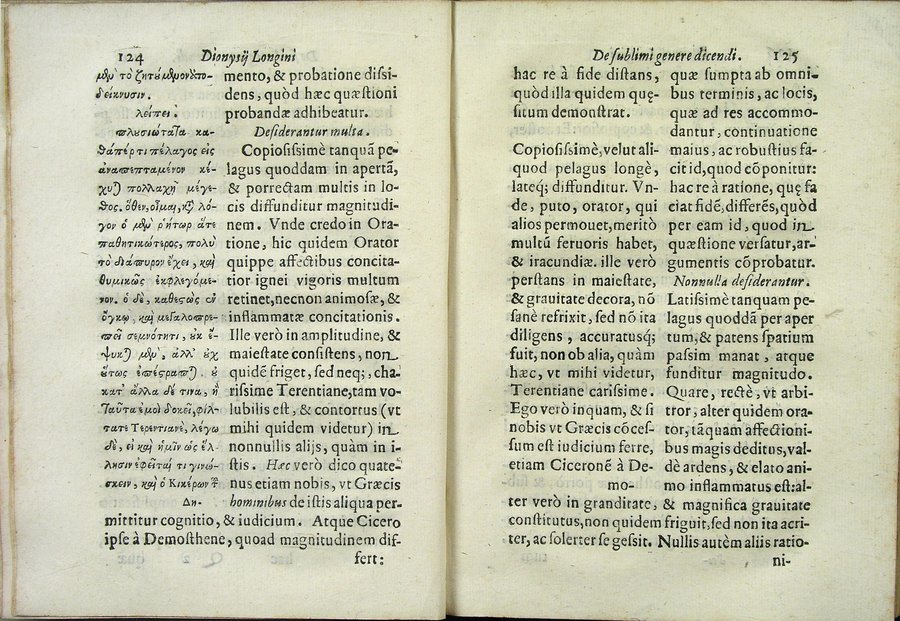 124 Dionysij Longini
μὲν τὸ ζητούμενον ὑπο-
δείκνυσιν.
λείπει.
πλυσιώταῖα κα-
θάπέρ τι πέλαγος εἰς
ἀναπεπταμένον κέ-
χυται πολλαχῆ μέγε-
θος. ὅθεν, οἶμαι, καὶ λό-
γον ὁ μὲν ῥήτωρ ἅτε
παθητικώτερος, πολὺ
τὸ διάπυρον ἔχει, καὶ
θυμικῶς ἐκφλεγόμε-
νον. ὁ δὲ, καθεςὼς ἐν
ὄγκῳ, καὶ μεγαλοπρε-
πεῖ σεμνότητι, οὐκ ἔ-
ψυκται μὲν, ἀλλ' οὐχ
οὕτως ἐπέςραπται. οὐ
κατ' ἄλλα δέ τινα, ἢ
ταῦτα ἐμοὶ δοκεῖ, φίλ-
τατε Τερεντιανέ, λέγω
δὲ, εἰ καὶ ἡμῖν ὡς ἕλ-
λησιν ἐφεῖταί τι γινώ-
σκειν, καὶ ὁ Κικέρων τοῦ
Δη-
mento, & probatione dissi-
dens, quòd hæc quæstioni
probandæ adhibeatur.
Desiderantur multa.
Copiosissimè tanquã pe-
lagus quoddam in apertã,
& porrectam multis in lo-
cis diffunditur magnitudi-
nem. Vnde credo in Ora-
tione, hic quidem Orator
quippe affectibus concita-
tior ignei vigoris multum
retinet, necnon animosæ, &
inflammatæ concitationis.
Ille verò in amplitudine, &
maiestate consistens, non
quidẽ friget, sed neq;, cha-
rissime Terentiane, tam vo-
lubilis est, & contortus (vt
mihi quidem videtur) in
nonnullis alijs, quàm in i-
stis. Hæc verò dico quate-
nus etiam nobis, vt Græcis
hominibus de istis aliqua per-
mittitur cognitio, & iudicium. Atque Cicero
ipse à Demosthene, quoad magnitudinem dif-
fert:
De sublimi genere dicendi. 125
hac re à fide distans,
quòd illa quidem quę-
situm demonstrat.
Copiosissimè, velut ali-
quod pelagus longè,
lateq; diffunditur. Vn-
de, puto, orator, qui
alios permouet, meritò
multũ feruoris habet,
& iracundiæ. ille verò
perstans in maiestate,
& grauitate decora, nõ
sanè refrixit, sed nõ ita
diligens, accuratusq;
fuit, non ob alia, quàm
hæc, vt mihi videtur,
Terentiane carissime.
Ego verò inquam, & si
nobis vt Græcis cõces-
sum est iudicium ferre,
etiam Ciceronẽ à De-
mo-
quæ sumpta ab omni-
bus terminis, ac locis,
quæ ad res accommo-
dantur, continuatione
maius, ac robustius fa-
cit id, quod cõponitur:
hac re à ratione, quę fa
ciat fidẽ, differẽs, quòd
per eam id, quod in
quæstione versatur, ar-
gumentis cõprobatur.
Nonnulla desiderantur.
Latissimè tanquam pe-
lagus quoddã per aper
tum, & patens spatium
passim manat, atque
funditur magnitudo.
Quare, rectè, vt arbi-
tror, alter quidem ora-
tor, tãquam affectioni-
bus magis deditus, val-
dè ardens, & elato ani-
mo inflammatus est: al-
ter verò in granditate, & magnifica grauitate
constitutus, non quidem friguit, sed non ita acri-
ter, ac solerter se gessit. Nullis autèm aliis ratio-
ni-